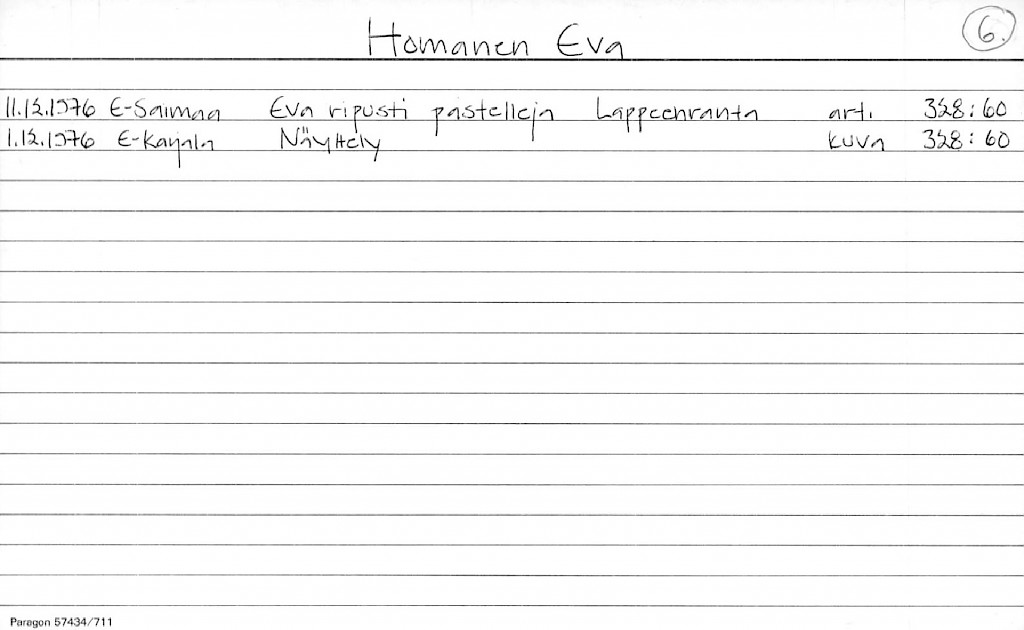 Homanen Eva 6.
11.12.1976 E-Saimaa Eva ripusti pastelleja Lappeenranta art. 328:60
1.12.1976 E-Karjala Näyttely kuva 328:60
Paragon 57434/711